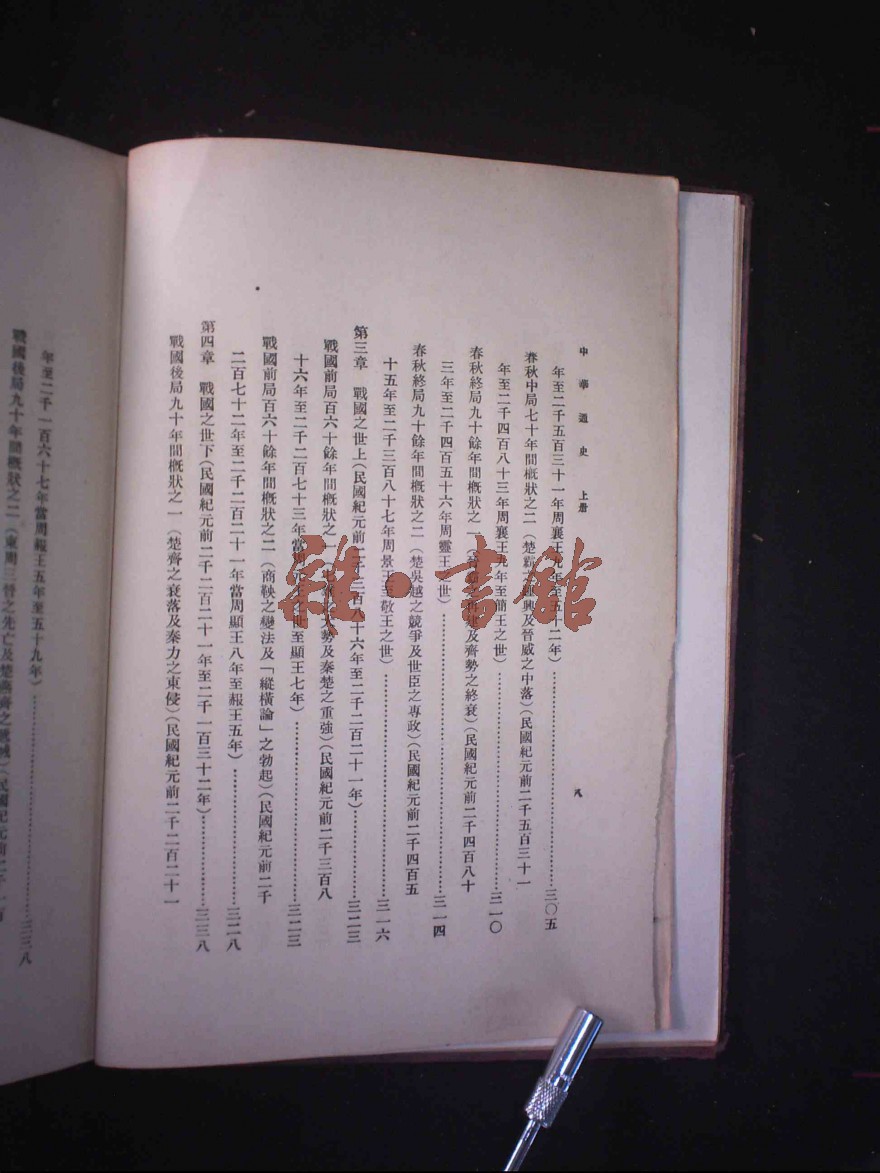 中華通史 上册
八
年至二千五百三十一年周襄王九年至五十二年）⋯⋯三〇五
春秋中局七十年間概狀之二（楚霸之踵興及晉威之中落）（民國紀元前二千五百三十一
年至二千四百八十三年周襄王九年至簡王之世）⋯⋯三一〇
春秋終局九十餘年間概狀之一（再建及齊勢之終衰）（民國紀元前二千四百八十
三年至二千四百五十六年周靈王之世）⋯⋯三一四
春秋終局九十餘年間概狀之二（楚吳越之競爭及世臣之專政）（民國紀元前二千四百五
十五年至二千三百八十七年周景王至敬王之世）⋯⋯三一六
第三章 戰國之世上（民國紀元前二千三百八十六年至二千二百二十一年）⋯⋯三二三
戰國前局百六十餘年間概狀之一（大勢及秦楚之重強）（民國紀元前二千三百八
十六年至二千二百七十三年當周元王之世至顯王七年）⋯⋯三二三
戰國前局百六十餘年間概狀之二（商鞅之變法及「縱橫論」之勃起）（民國紀元前二千
二百七十二年至二千二百二十一年當周顯王八年至赧王五年）⋯⋯三二八
第四章 戰國之世下（民國紀元前二千二百二十一年至二千一百三十二年）⋯⋯三三八
戰國後局九十年間概狀之一（楚齊之衰落及秦力之東侵）（民國紀元前二千二百二十一
年至二千一百六十七年當周赧王五年至五十九年）⋯⋯三三八
戰國後局九十年間概狀之二（東周三晉之先亡及楚燕齊之（民國紀元前二千一百
雜·書館